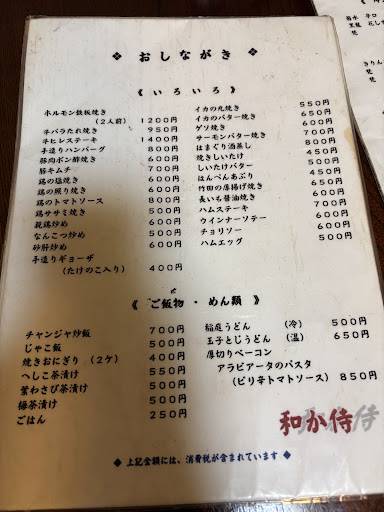 ❖ おしながき ❖
《 いろいろ 》
ホルモン鉄板焼き
(2人前) 1200円
牛バラたれ焼き 950円
牛ヒレステーキ 1400円
手造りハンバーグ 800円
豚肉ポン酢焼き 600円
豚キムチ 700円
鶏の塩焼き 600円
鶏の照り焼き 600円
鶏のトマトソース 800円
鶏ササミ焼き 600円
親鶏炒め 600円
なんこつ炒め 600円
砂肝炒め 600円
手造りギョーザ
(たけのこ入り) 400円
イカの丸焼き 550円
イカのバター焼き 650円
ゲソ焼き 600円
サーモンバター焼き 700円
はまぐり酒蒸し 800円
焼きしいたけ 450円
しいたけバター 500円
はんぺんあぶり 450円
竹田の厚揚げ焼き 650円
長いも醤油焼き 500円
ハムステーキ 700円
ウインナーソテー 600円
チョリソー 500円
ハムエッグ 500円
《 ご飯物 ・ めん類 》
チャンジャ炒飯 700円
じゃこ飯 500円
焼きおにぎり (2ケ) 400円
へしこ茶漬け 550円
葉わさび茶漬け 500円
梅茶漬け 500円
ごはん 250円
稲庭うどん (冷) 500円
玉子とじうどん (温) 650円
厚切りベーコン
アラビアータのパスタ
(ピリ辛トマトソース) 850円
和か侍
◆ 上記金額には、消費税が含まれています ◆